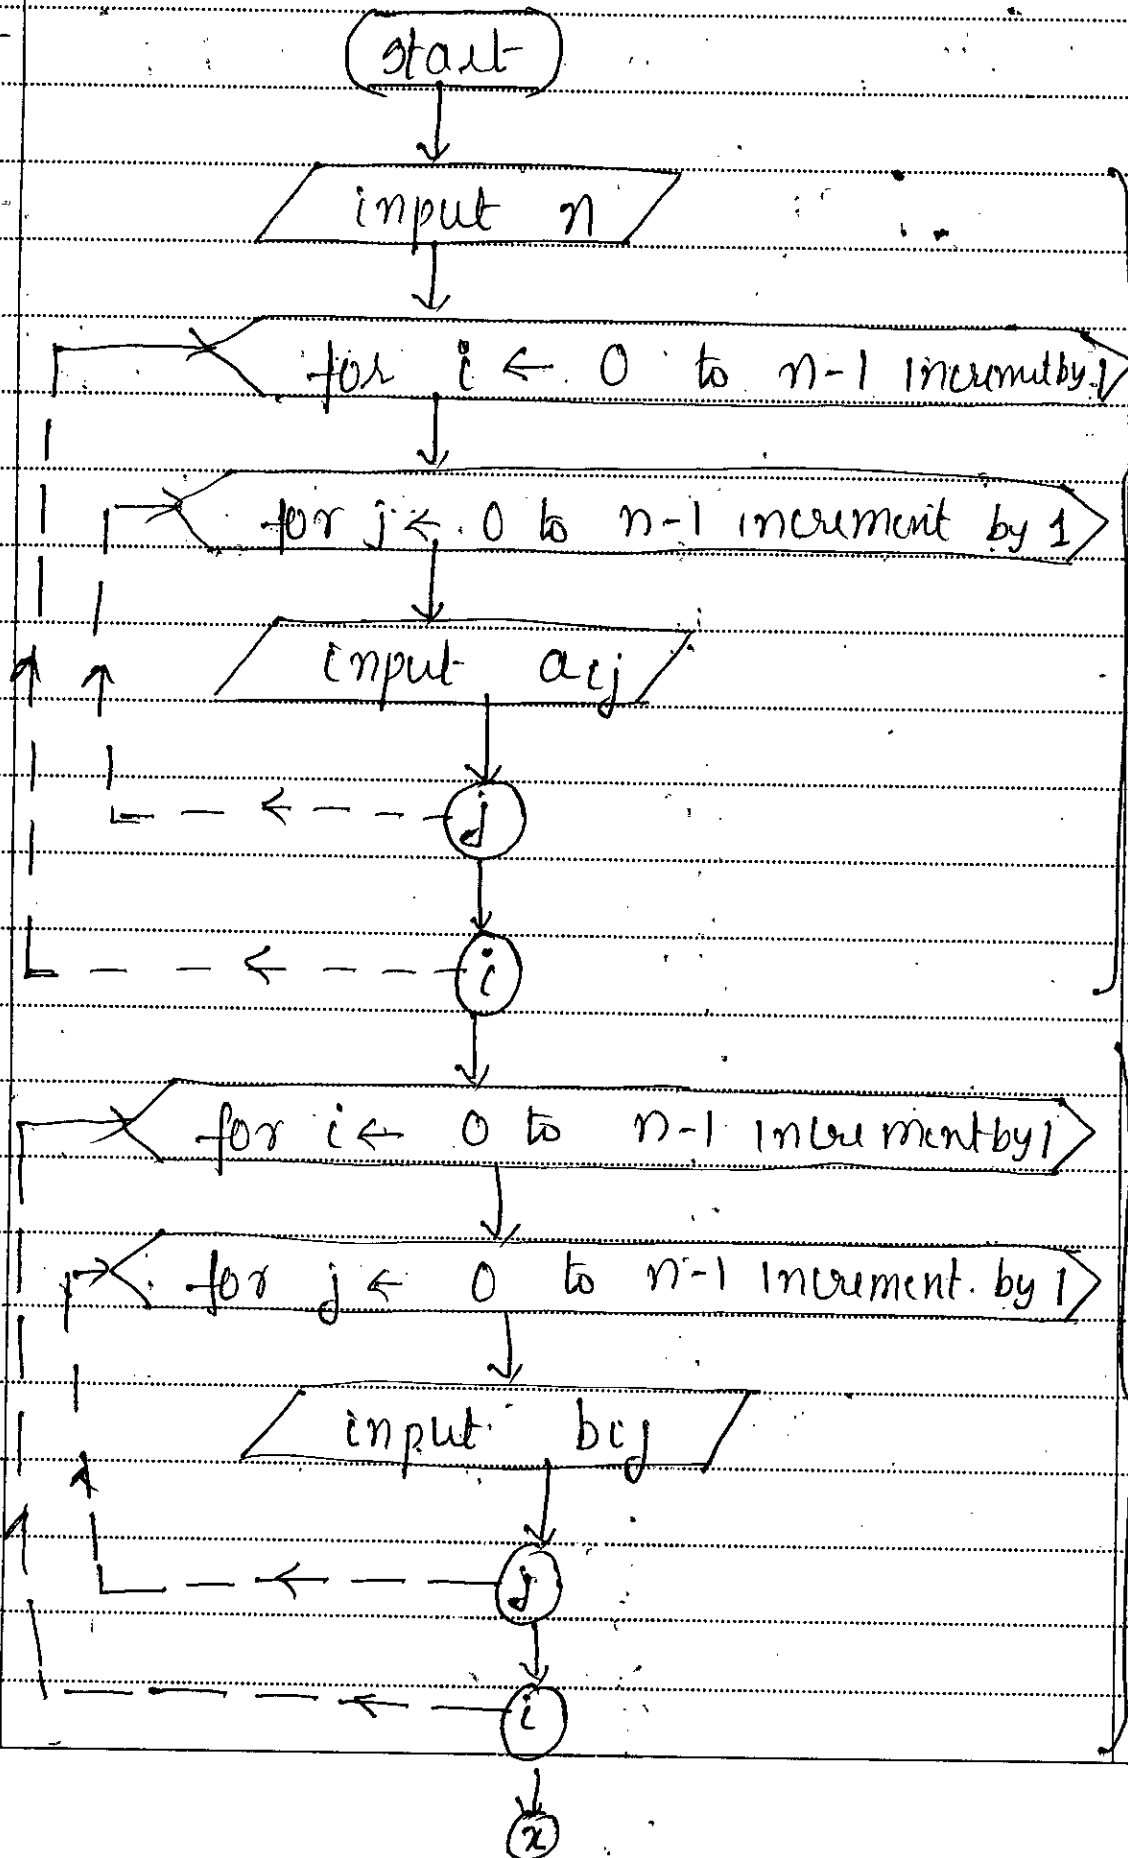 start
input n
for i ← 0 to n-1 incremutby 1
for j ← 0 to n-1 increment by 1
input aij
j
i
for i ← 0 to n-1 increment by 1
for j ← 0 to n-1 increment by 1
input bij
j
i
x